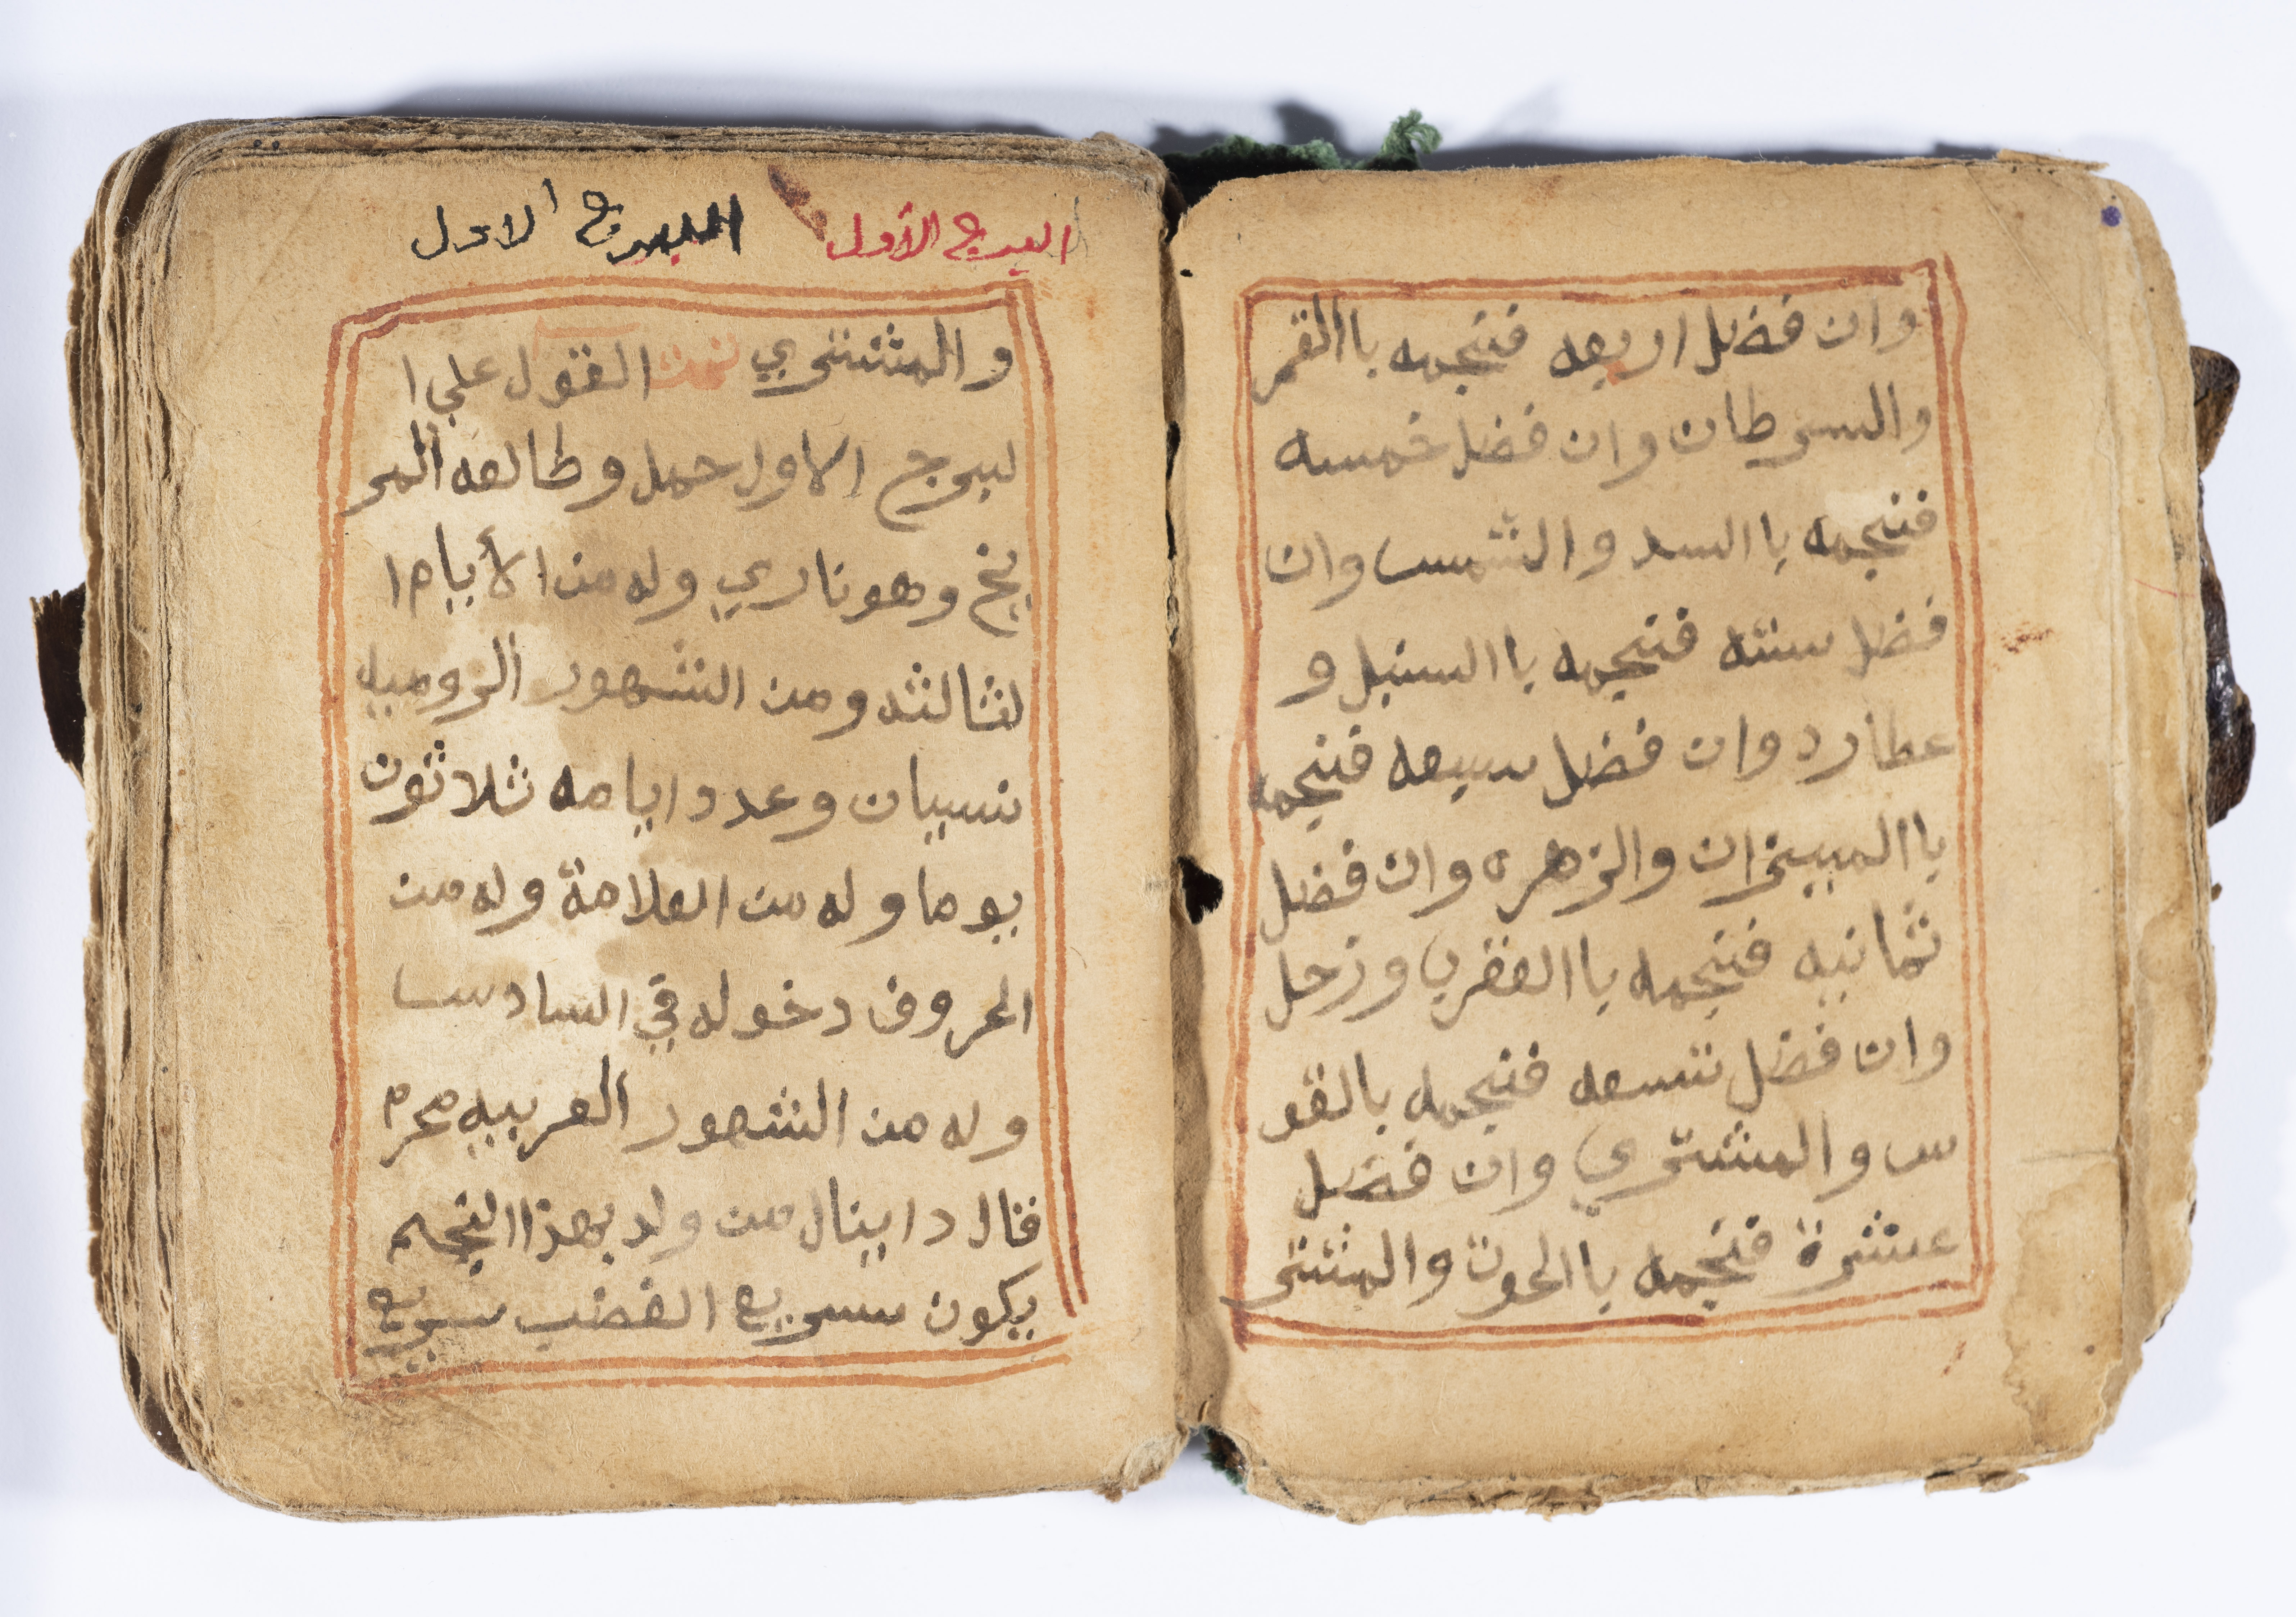 وان فضل اربعه فنجمه باالقمر
والسرطان وان فضل خمسه
فنجمه باالسد والشمس وان
فضل سته فنجمه باالسنبل و
عطارد وان فضل سبعه فنجمه
باالميزان والزهره وان فضل
ثمانيه فنجمه باالعقرب وزحل
وان فضل تسعه فنجمه بالقو
س والمشتري وان فضل
عشرة فنجمه باالحوت والمشتر
البرج الأول البرج الاول
والمشتري تمت القول على ا
لبرج الاول حمل وطالعه المر
يخ وهو ناري وله من الأيام ا
لثالثه ومن الشهور الروميه
نسيان وعدد ايامه ثلاثون
يوما وله من العلامة وله من
الحروف دخوله في السادس
وله من الشهور العربيه محرم
قال دانيال من ولد بهذا النجم
يكون سريع الغضب سريع